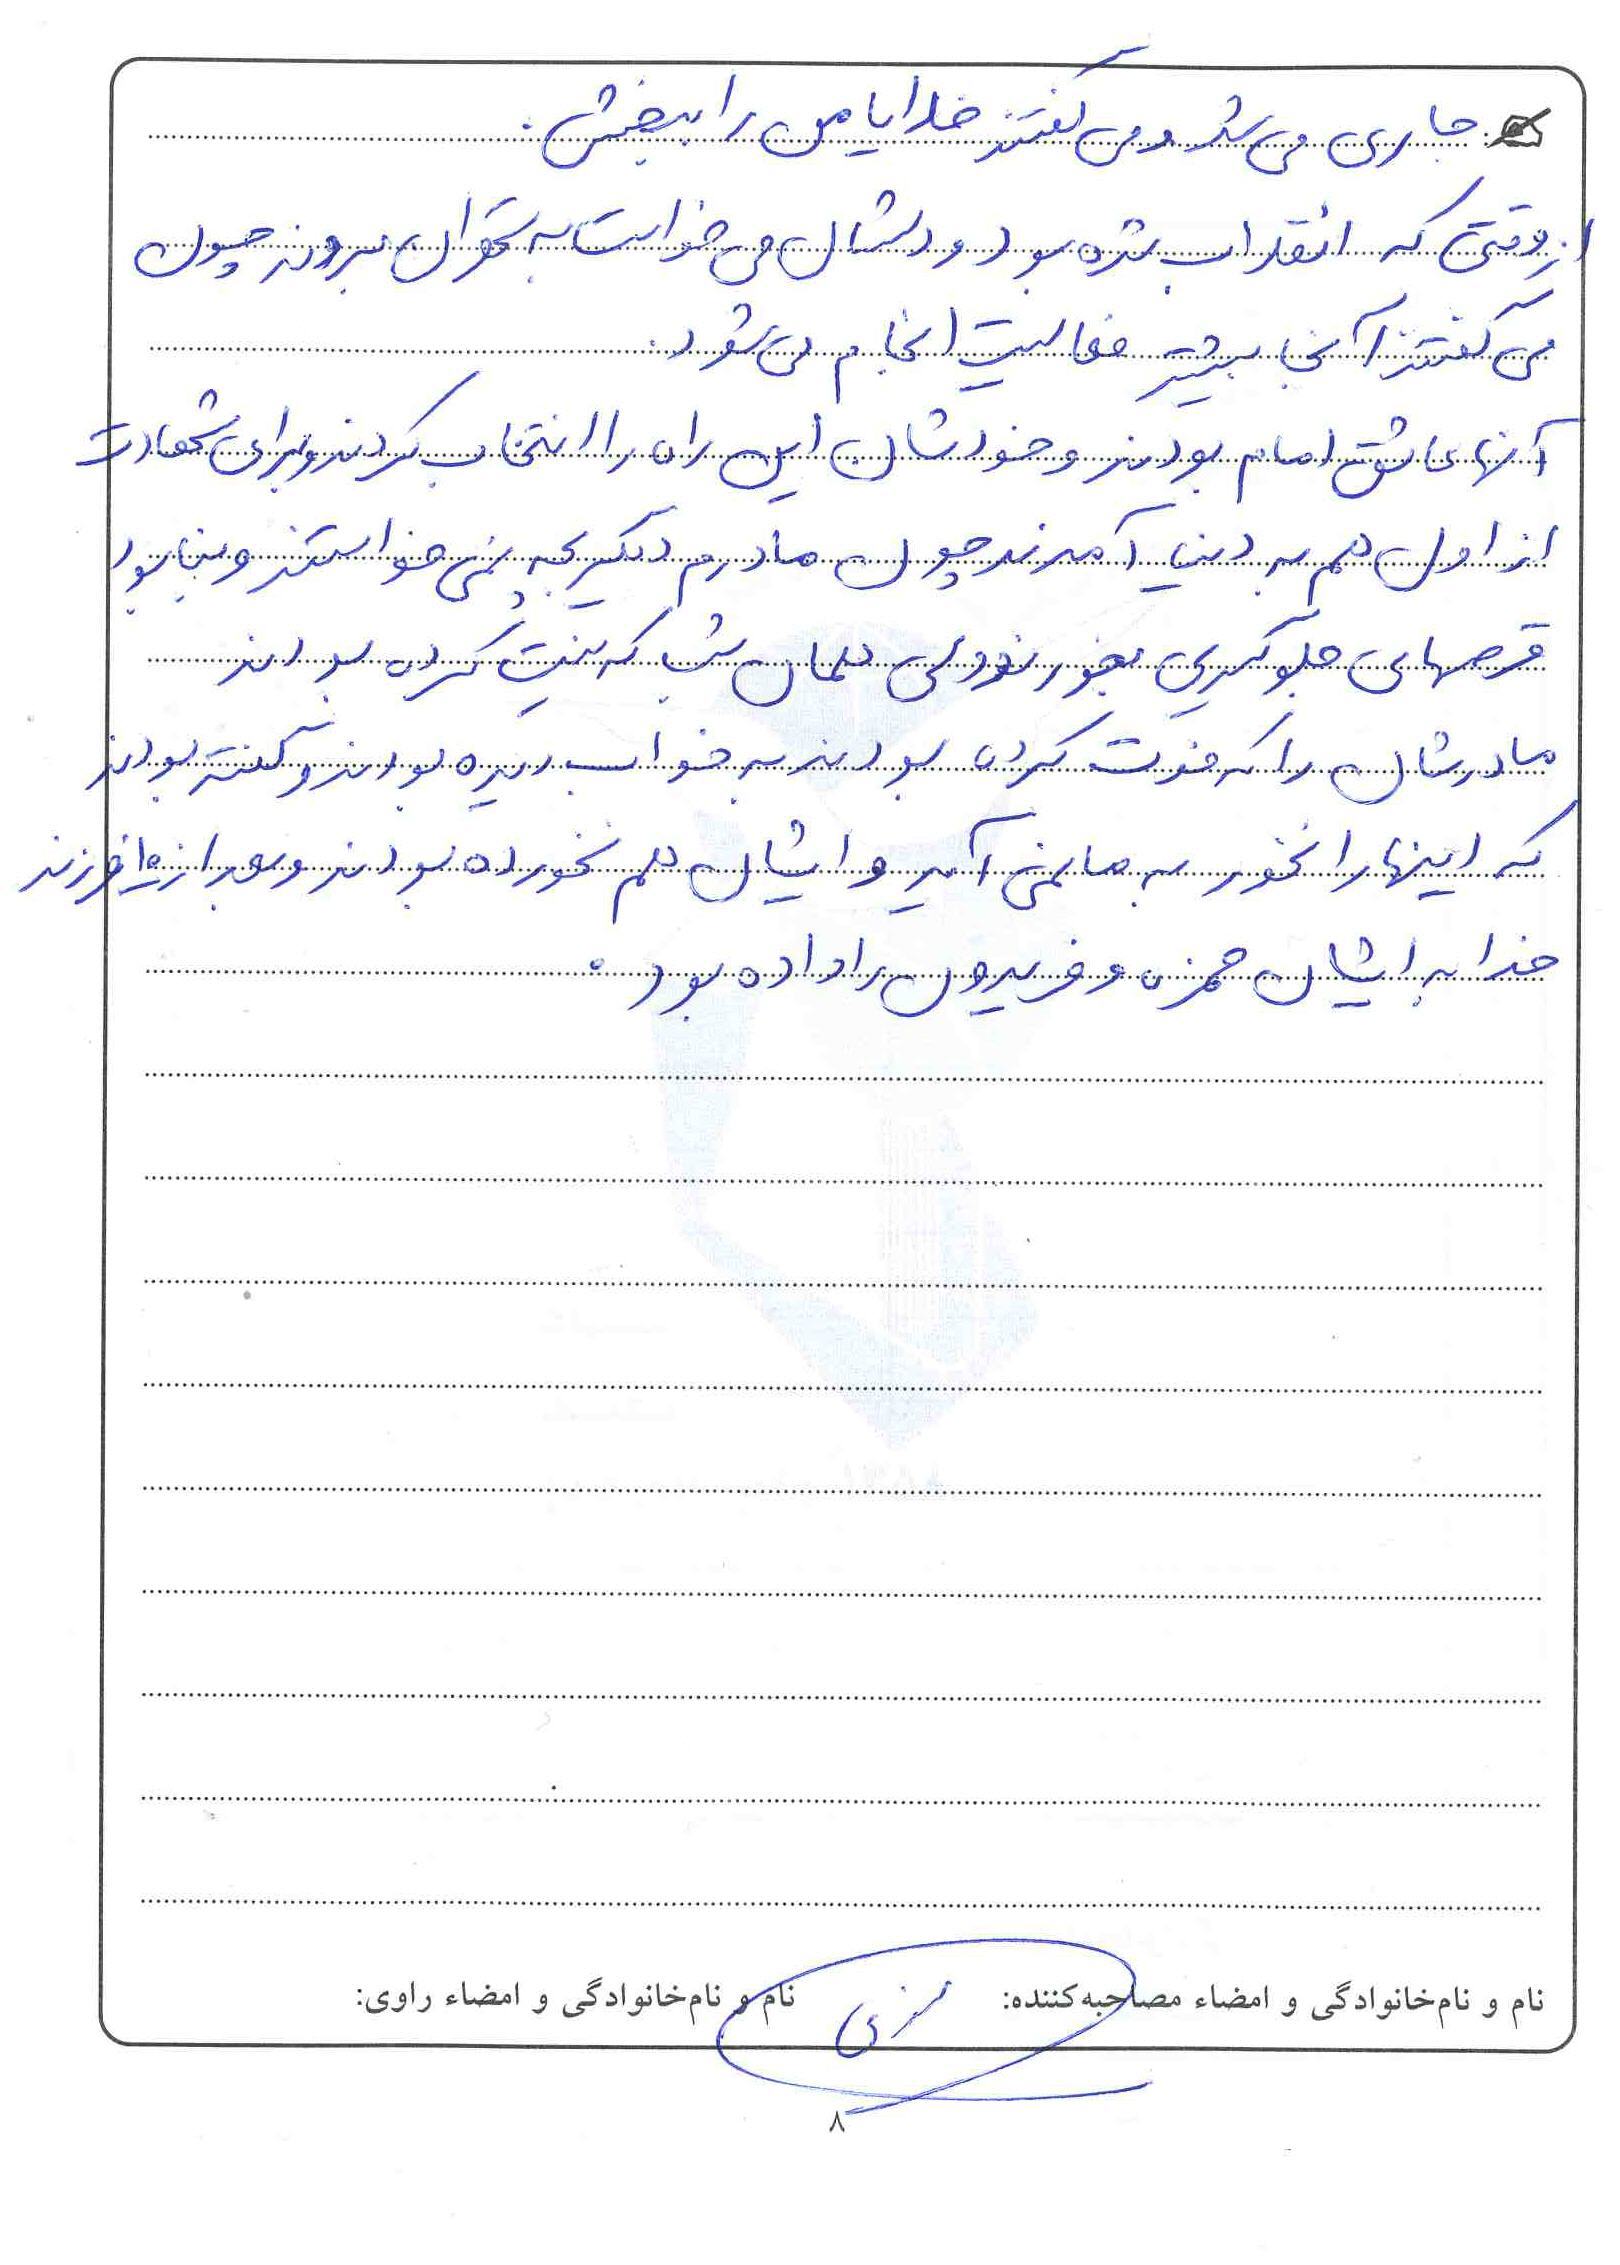 جاری می‌شد و می‌گفتند خدایا من را ببخش.
از وقتی که انقلاب شده بود دلشان می‌خواست به تهران بروند چون
می‌گفتند آنجا بیشتر فعالیت انجام می‌شود.
آنها عاشق امام بودند و خودشان این راه را انتخاب کردند و برای شهادت
از اول هم به دنیا آمدند چون مادرم دیگر بچه نمی‌خواستند و بنا بود
قرصهای جلوگیری بخورند ولی همان شب که نیت کرده بودند
مادرشان را که فوت کرده بودند به خواب دیده بودند و گفته بودند
که اینها را نخور به ما نمی‌آید و ایشان هم نخورده بودند و بعد از فرزند
خدا به ایشان حمزه و فریدون را داده بود.
نام و نام‌خانوادگی و امضاء مصاحبه‌کننده: نام و نام‌خانوادگی و امضاء راوی:
۸